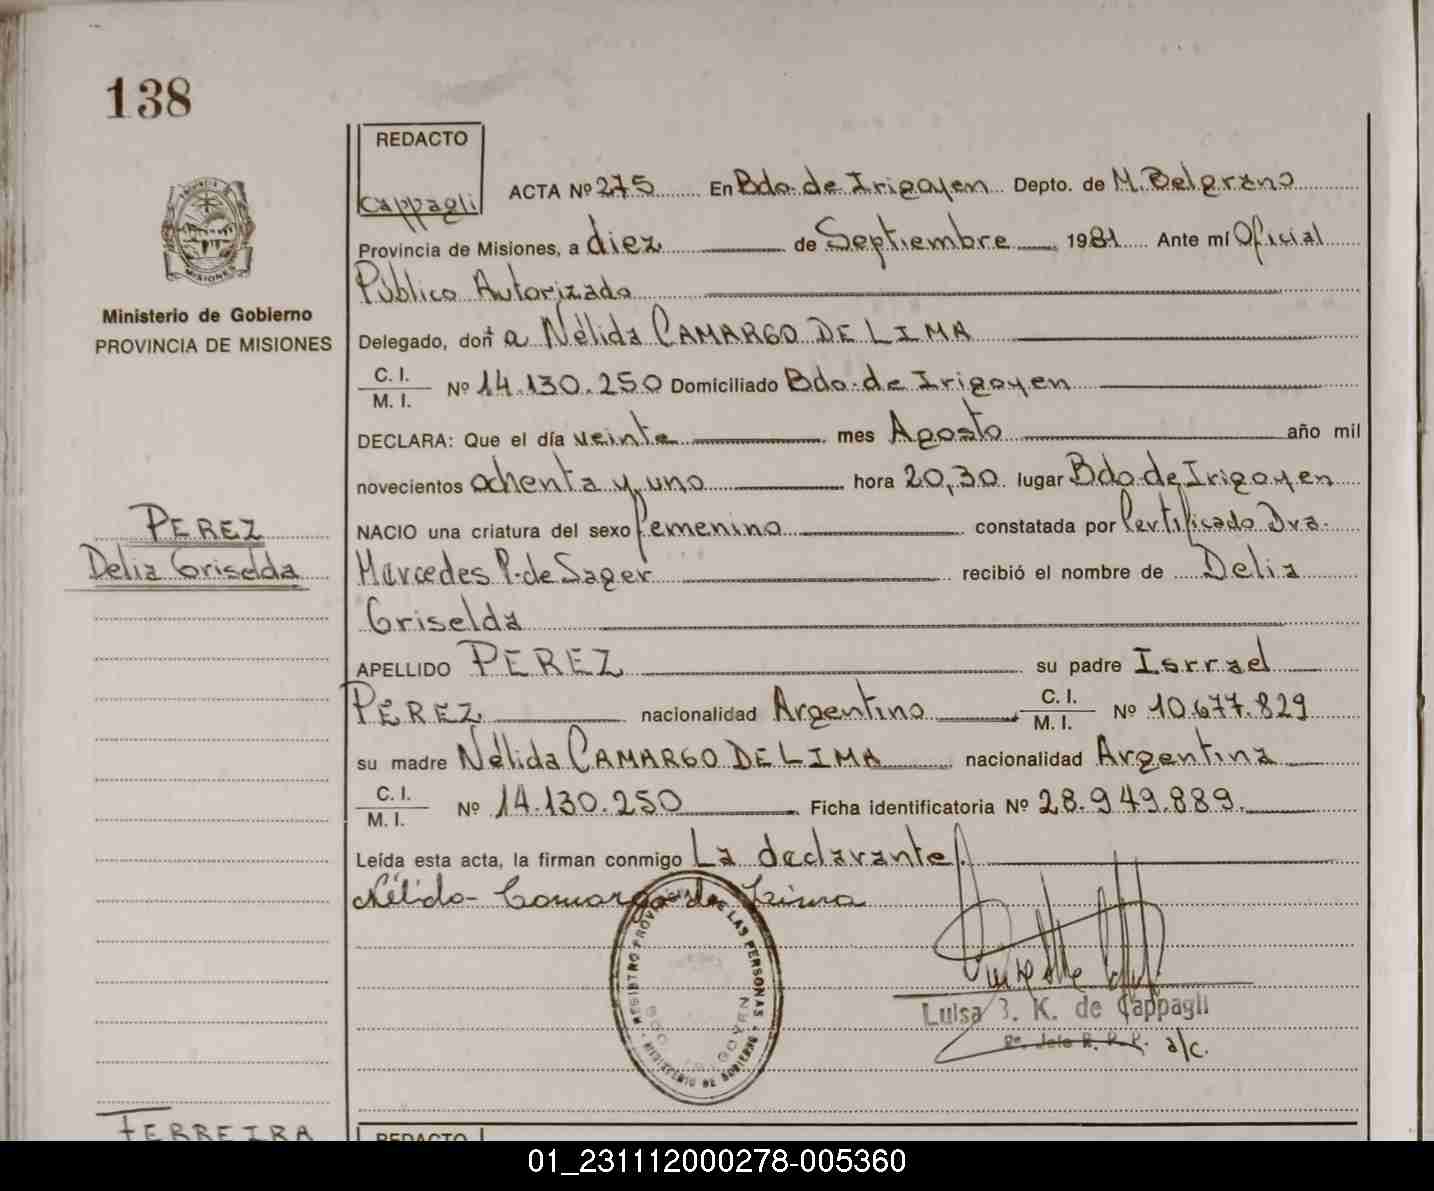 138
REDACTO
Cappagli
ACTA Nº 275 En Bdo. de Irigoyen Depto. de M. Belgrano
Provincia de Misiones, a diez de Septiembre 1981 Ante mí Oficial
Público Autorizado
Ministerio de Gobierno
PROVINCIA DE MISIONES
Delegado, doña Nélida CAMARGO DE LIMA
C. I.
M. I. Nº 14.130.250 Domiciliado Bdo. de Irigoyen
DECLARA: Que el día veinte mes Agosto año mil
novecientos ochenta y uno hora 20,30 lugar Bdo de Irigoyen
PEREZ
Delia Griselda
NACIO una criatura del sexo femenino constatada por Certificado Dra.
Marcedes P. de Sager recibió el nombre de Delia
Griselda
APELLIDO PEREZ su padre Isrrael
PEREZ nacionalidad Argentino C. I. M. I. Nº 10.677.829
su madre Nélida CAMARGO DE LIMA nacionalidad Argentina
C. I.
M. I. Nº 14.130.250 Ficha identificatoria Nº 28.949.889.
Leída esta acta, la firman conmigo La declarante
Nélida Camargo de Lima
REGISTRO PROVINCIAL DE LAS PERSONAS
MINISTERIO DE GOBIERNO
Luisa K. de Cappagli
a/c.
FERREIRA
REDACTO
01_231112000278-005360